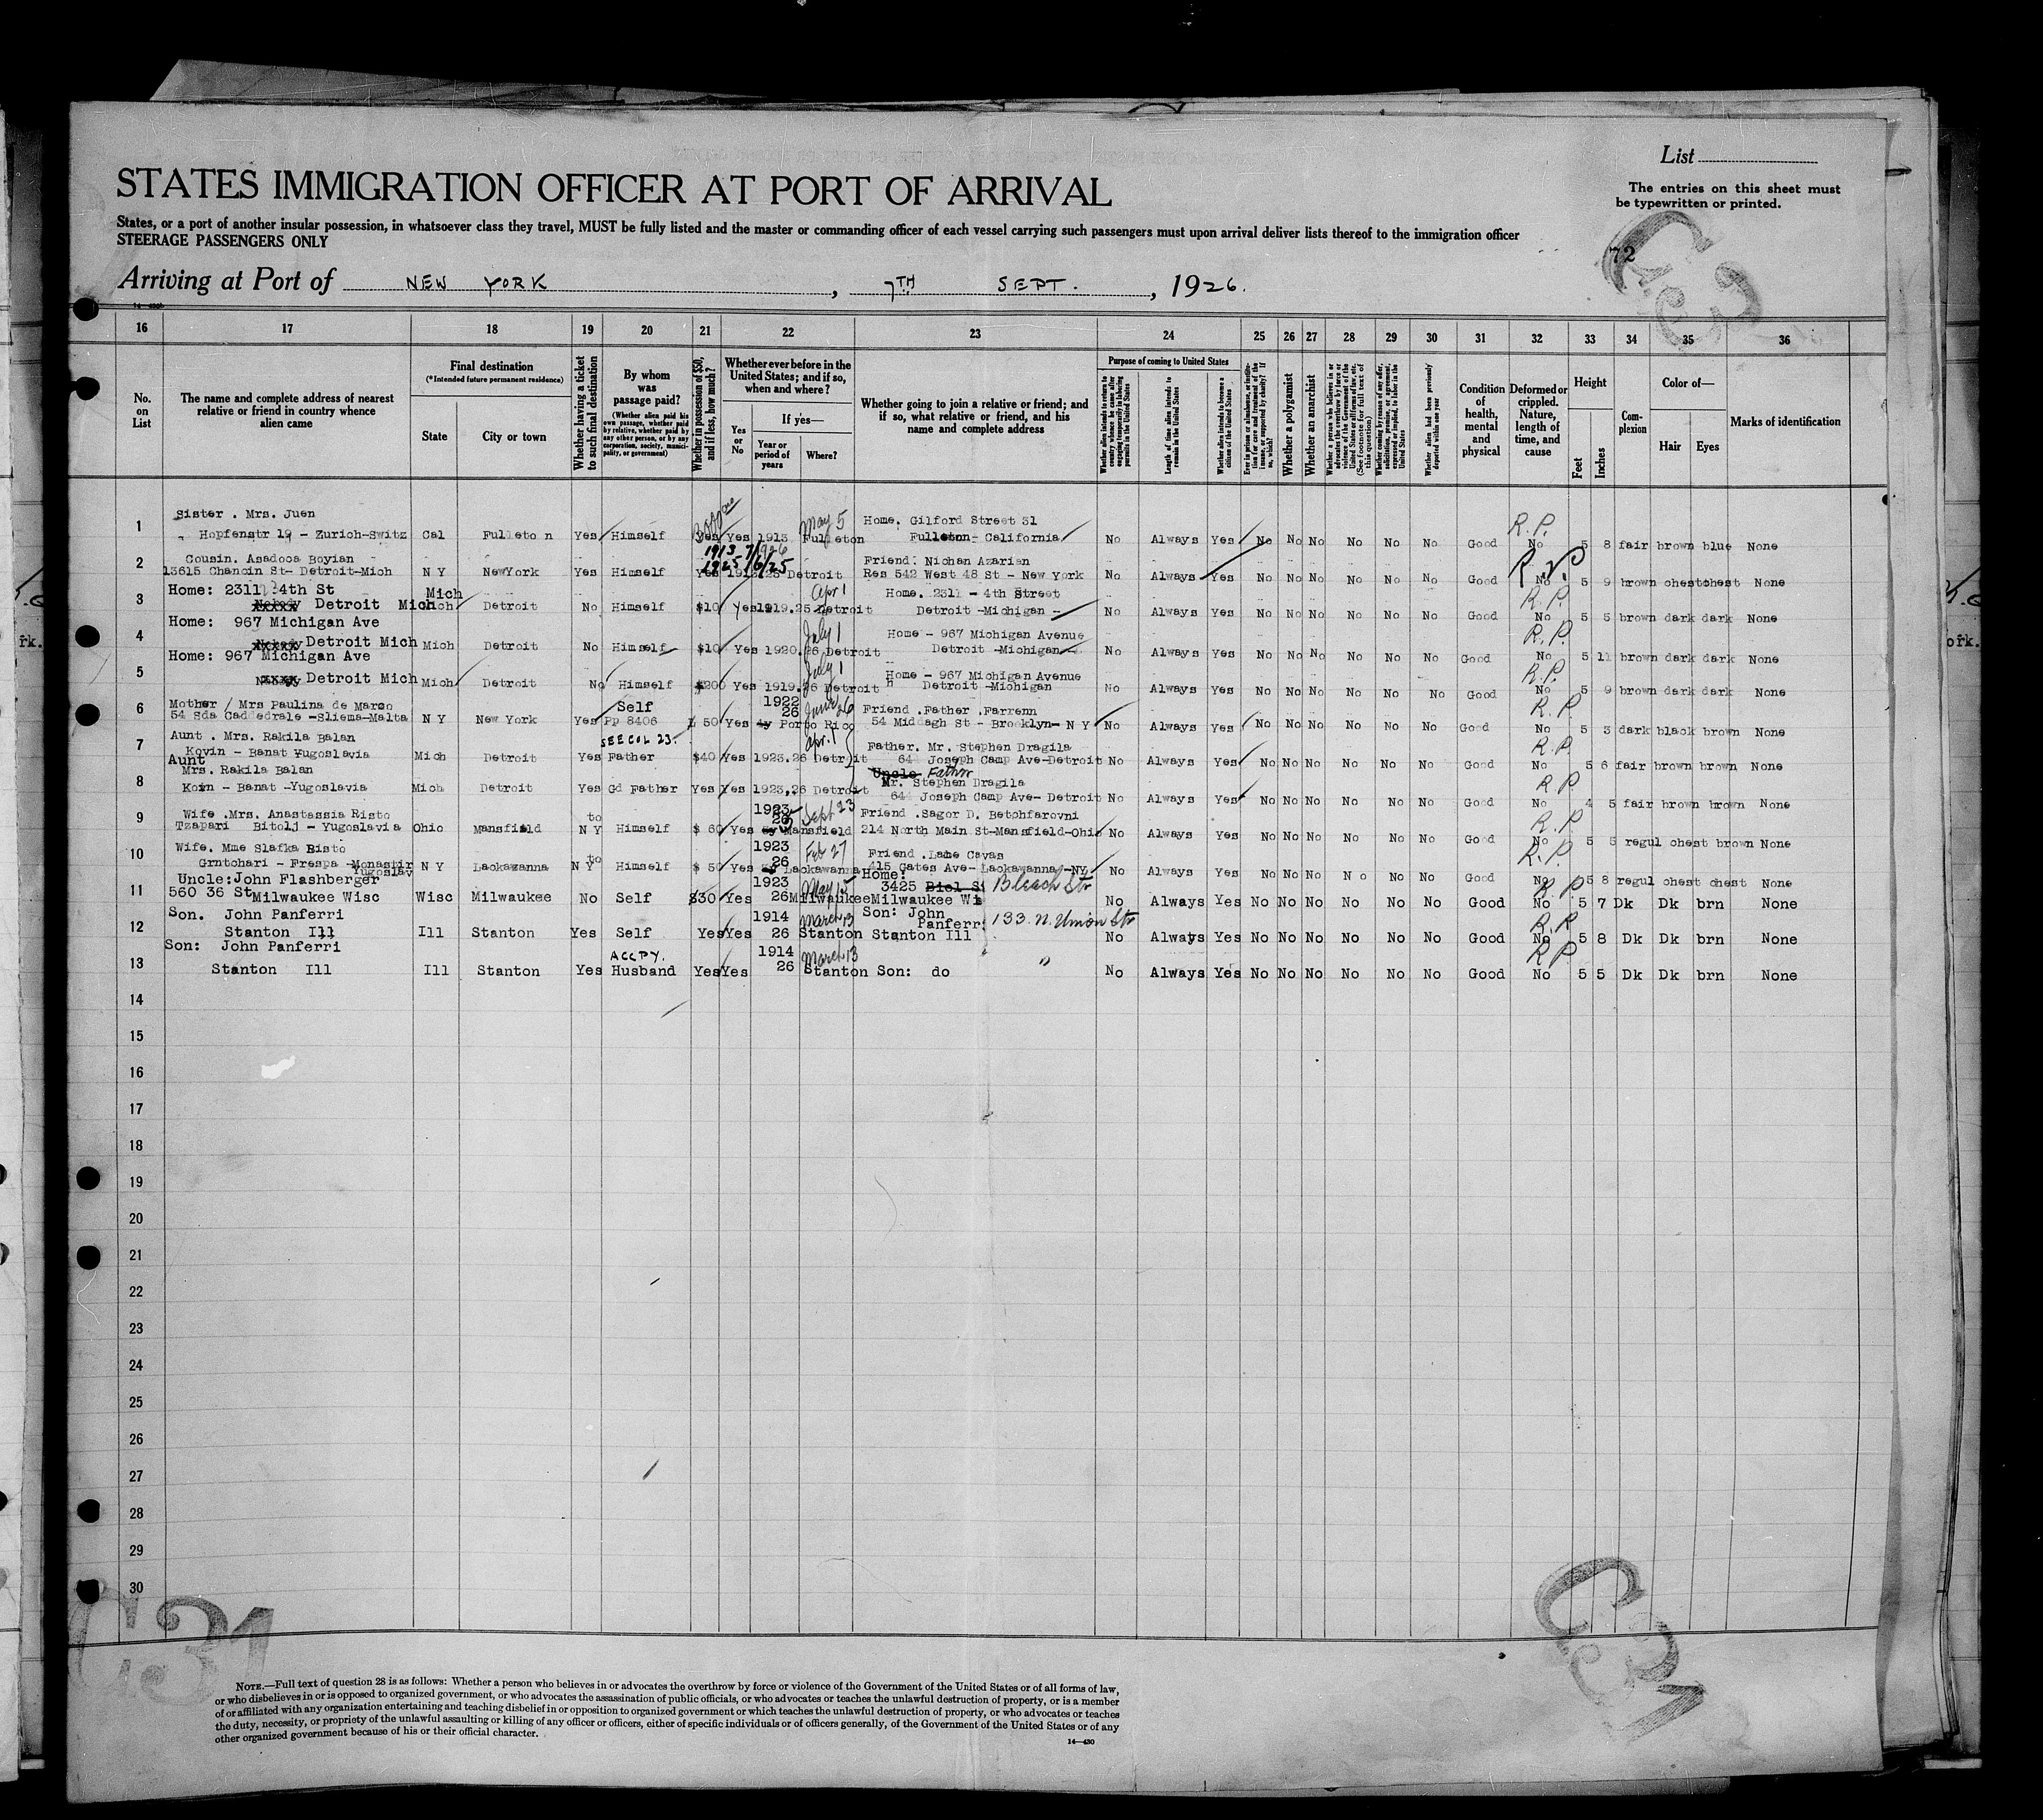 List
STATES IMMIGRATION OFFICER AT PORT OF ARRIVAL
The entries on this sheet must
be typewritten or printed.
States, or a port of another insular possession, in whatsoever class they travel, MUST be fully listed and the master or commanding officer of each vessel carrying such passengers must upon arrival deliver lists thereof to the immigration officer
STEERAGE PASSENGERS ONLY
72
Arriving at Port of NEW YORK, 7TH SEPT. , 1926.
16 17 18 19 20 21 22 23 24 25 26 27 28 29 30 31 32 33 34 35 36
No. on List
The name and complete address of nearest relative or friend in country whence alien came
Final destination
(*Intended future permanent residence)
State
City or town
Whether having a ticket to such final destination
By whom was passage paid?
(Whether alien paid his own passage, whether paid by relative, whether paid by any other person, or by any corporation, society, municipality, or government)
Whether in possession of $50, and if less, how much?
Whether ever before in the United States; and if so, when and where?
Yes or No
If yes—
Year or period of years
Where?
Whether going to join a relative or friend; and if so, what relative or friend, and his name and complete address
Purpose of coming to United States
Length of time alien intends to remain in the United States
Whether alien intends to become a citizen of the United States
Whether a polygamist
Whether an anarchist
Whether alien had been previously deported within one year
Condition of health, mental and physical
Deformed or crippled. Nature, length of time, and cause
Height
Feet
Inches
Complexion
Color of—
Hair
Eyes
Marks of identification
Sister . Mrs. Juen May 5 Home. Gilford Street 31 R.P.
1 Hopfenstr 19 - Zurich-Switz Cal Fulleton Yes Himself Yes Yes 1913 Fulleton Fulleton- California No Always Yes No No No No No No Good No 5 8 fair brown blue None
Cousin. Asadooa Boyian 1913 7/1926 Friend. Nichan Azarian
2 13615 Chanoin St- Detroit-Mich N Y NewYork Yes Himself Yes Detroit Res 542 West 48 St - New York No Always Yes No No No No No No Good No 5 9 brown chest chest None
Home: 2311 4th St Mich Apr 1 Home. 2311 - 4th Street R.P.
3 Detroit Mich Detroit No Himself $10 Yes 1919.25 Detroit Detroit -Michigan - No Always Yes No No No No No No Good No 5 5 brown dark dark None
Home: 967 Michigan Ave July 1 Home - 967 Michigan Avenue R.P.
4 Detroit Mich Mich Detroit No Himself $10 Yes 1920.26 Detroit Detroit -Michigan- No Always Yes No No No No No No Good No 5 11 brown dark dark None
Home: 967 Michigan Ave July 1 Home - 967 Michigan Avenue R.P.
5 Detroit Mich Mich Detroit No Himself $200 Yes 1919.26 Detroit Detroit -Michigan No Always Yes No No No No No No Good No 5 9 brown dark dark None
Mother / Mrs Paulina de Marzo Self 1922 26 June 26 Friend .Father .Farrenn R.P.
6 54 Sda Caddedrale -Sliema-Malta N Y New York Yes Pp 8406 50 Yes Porto Rico 54 Middagh St - Brooklyn- N Y No Always Yes No No No No No No Good No 5 3 dark black brown None
Aunt . Mrs. Rakila Balan SEE COL 23. Apr. 1 Father. Mr. Stephen Dragila R.P.
7 Kovin - Banat Yugoslavia Mich Detroit Yes Father $40 Yes 1923.26 Detroit 644 Joseph Camp Ave-Detroit No Always Yes No No No No No No Good No 5 6 fair brown brown None
Aunt Uncle Father
Mrs. Rakila Balan Mr. Stephen Dragila R P
8 Koin - Banat -Yugoslavia Mich Detroit Yes Gd Father Yes Yes 1923.26 Detroit 644 Joseph Camp Ave- Detroit No Always Yes No No No No No No Good No 4 5 fair brown brown None
Wife .Mrs. Anastassia Risto to 1923 26 Sept 23 Friend .Sagor D. Betchfarovni R.P
9 Tzapari Bitolj - Yugoslavia Ohio Mansfield N Y Himself $ 60 Yes Mansfield 214 North Main St-Mansfield-Ohio No Always Yes No No No No No No Good No 5 5 regul chest brown None
Wife. Mme Slafka Risto to 1923 26 Feb 27 Friend .Lahe Cavas R.P.
10 Grntohari - Frespa -Monastir Yugoslav N Y Lackawanna N Y Himself $ 50 Yes Lackawanna 415 Gates Ave- Lackawanna-NY No Always Yes No No No No No No Good No 5 8 regul chest chest None
Uncle:John Flashberger 1923 May 15 Home: 3425 Bleach Str R P
11 560 36 St Milwaukee Wisc Wisc Milwaukee No Self $30 Yes 26 Milwaukee Milwaukee Wi No Always Yes No No No No No No Good No 5 7 Dk Dk brn None
Son. John Panferri 1914 March 13 Son: John Panferr: 133. N. Union Str R.P
12 Stanton Ill Ill Stanton Yes Self Yes Yes 26 Stanton Stanton Ill No Always Yes No No No No No No Good No 5 8 Dk Dk brn None
Son: John Panferri ACCPY. 1914 March 13 " R P
13 Stanton Ill Ill Stanton Yes Husband Yes Yes 26 Stanton Son: do No Always Yes No No No No No No Good No 5 5 Dk Dk brn None
14
15
16
17
18
19
20
21
22
23
24
25
26
27
28
29
30
C31
C31
NOTE.—Full text of question 28 is as follows: Whether a person who believes in or advocates the overthrow by force or violence of the Government of the United States or of all forms of law,
or who disbelieves in or is opposed to organized government, or who advocates the assassination of public officials, or who advocates or teaches the unlawful destruction of property, or is a member
of or affiliated with any organization entertaining and teaching disbelief in or opposition to organized government or which teaches the unlawful destruction of property, or who advocates or teaches
the duty, necessity, or propriety of the unlawful assaulting or killing of any officer or officers, either of specific individuals or of officers generally, of the Government of the United States or of any
other organized government because of his or their official character.
14—430